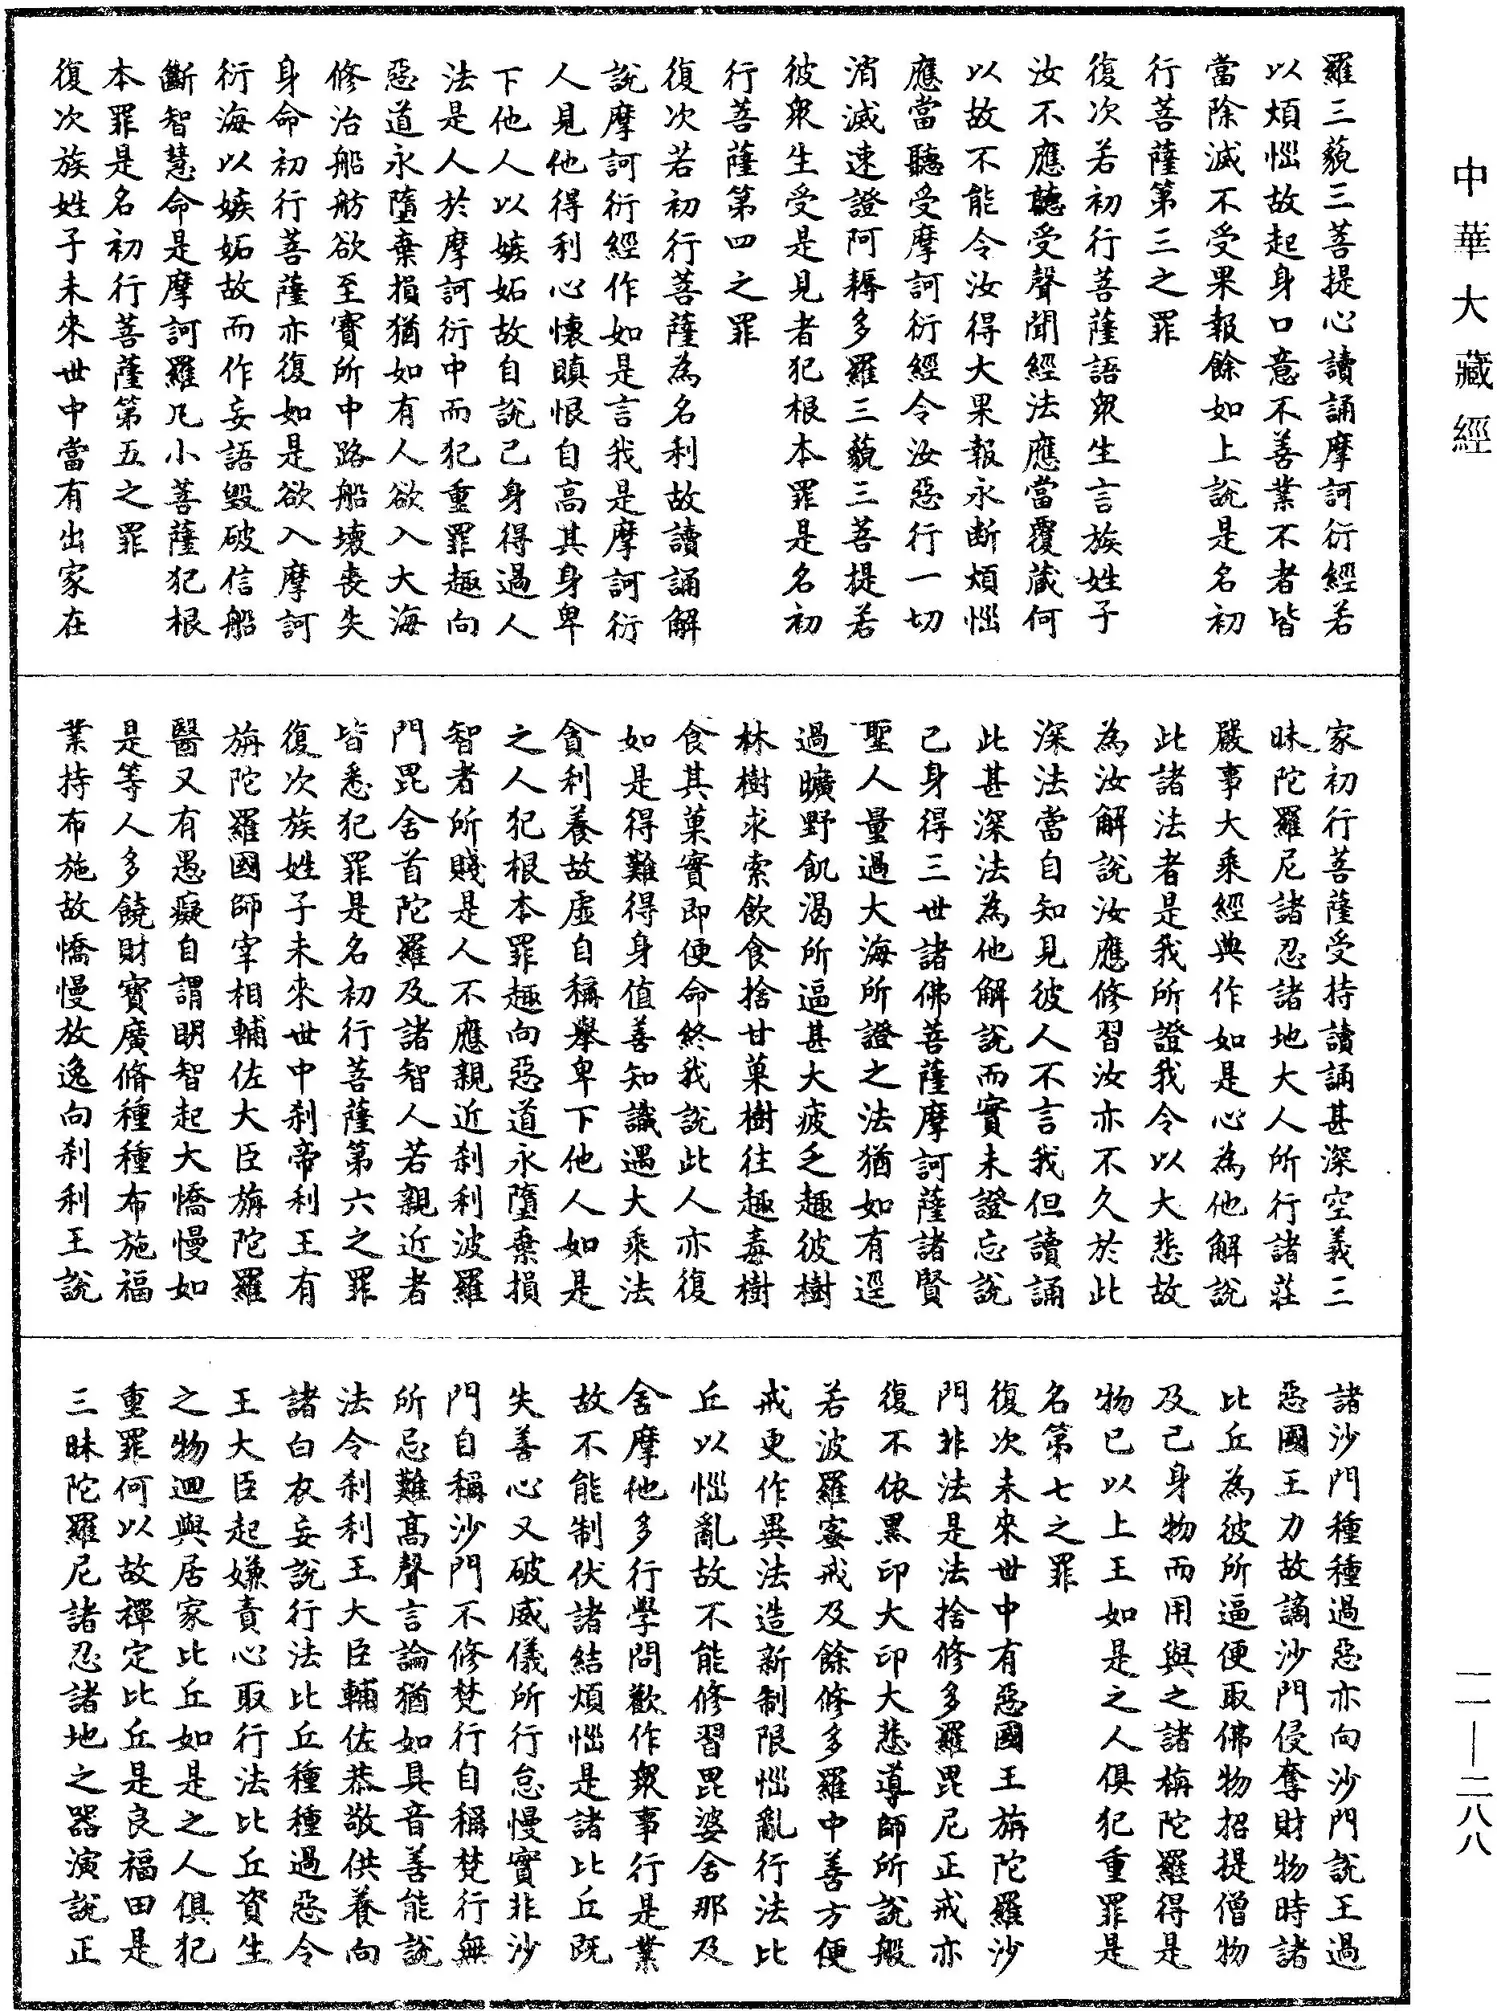 中華大藏經
羅三藐三菩提心讀誦摩訶衍經若
以煩惱故起身口意不善業不者皆
當除滅不受果報餘如上說是名初
行菩薩第三之罪
復次若初行菩薩語眾生言族姓子
汝不應聽受聲聞經法應當覆藏何
以故不能令汝得大果報永斷煩惱
應當聽受摩訶衍經令汝惡行一切
消滅速證阿耨多羅三藐三菩提若
彼眾生受是見者犯根本罪是名初
行菩薩第四之罪
復次若初行菩薩為名利故讀誦解
說摩訶衍經作如是言我是摩訶衍
人見他得利心懷瞋恨自高其身卑
下他人以嫉妬故自說己身得過人
法是人於摩訶衍中而犯重罪趣向
惡道永墮棄損猶如有人欲入大海
修治船舫欲至寶所中路船壞喪失
身命初行菩薩亦復如是欲入摩訶
衍海以嫉妬故而作妄語毀破信船
斷智慧命是摩訶羅凡小菩薩犯根
本罪是名初行菩薩第五之罪
復次族姓子未來世中當有出家在
家初行菩薩受持讀誦甚深空義三
昧陀羅尼諸忍諸地大人所行諸莊
嚴事大乘經典作如是心為他解說
此諸法者是我所證我令以大悲故
為汝解說汝應修習汝亦不久於此
深法當自知見彼人不言我但讀誦
此甚深法為他解說而實未證忘說
己身得三世諸佛菩薩摩訶薩諸賢
聖人量過大海所證之法猶如有逕
過曠野飢渴所逼甚大疲乏趣彼樹
林樹求索飲食捨甘菓樹往趣毒樹
食其菓實即便命終我說此人亦復
如是得難得身值善知識遇大乘法
貪利養故虛自稱舉卑下他人如是
之人犯根本罪趣向惡道永墮棄損
智者所賤是人不應親近剎利波羅
門毘舍首陀羅及諸智人若親近者
皆悉犯罪是名初行菩薩第六之罪
復次族姓子未來世中剎帝利王有
旃陀羅國師宰相輔佐大臣旃陀羅
醫又有愚癡自謂明智起大憍慢如
是等人多饒財寶廣脩種種布施福
業持布施故憍慢放逸向剎利王說
諸沙門種種過惡亦向沙門說王過
惡國王力故謫沙門侵奪財物時諸
比丘為彼所逼便取佛物招提僧物
及己身物而用與之諸栴陀羅得是
物已以上王如是之人俱犯重罪是
名第七之罪
復次未來世中有惡國王旃陀羅沙
門非法是法捨修多羅毘尼正戒亦
復不依黑印大印大悲導師所說般
若波羅蜜戒及餘修多羅中善方便
戒更作異法造新制限惱亂行法比
丘以惱亂故不能修習毘婆舍那及
舍摩他多行學問歡作眾事行是業
故不能制伏諸結煩惱是諸比丘既
失善心又破威儀所行怠慢實非沙
門自稱沙門不修梵行自稱梵行無
所忌難高聲言論猶如具音善能說
法令剎利王大臣輔佐恭敬供養向
諸白衣妄說行法比丘種種過惡令
王大臣起嫌責心取行法比丘資生
之物迴與居家比丘如是之人俱犯
重罪何以故禪定比丘是良福田是
三昧陀羅尼諸忍諸地之器演說正
一一—二八八